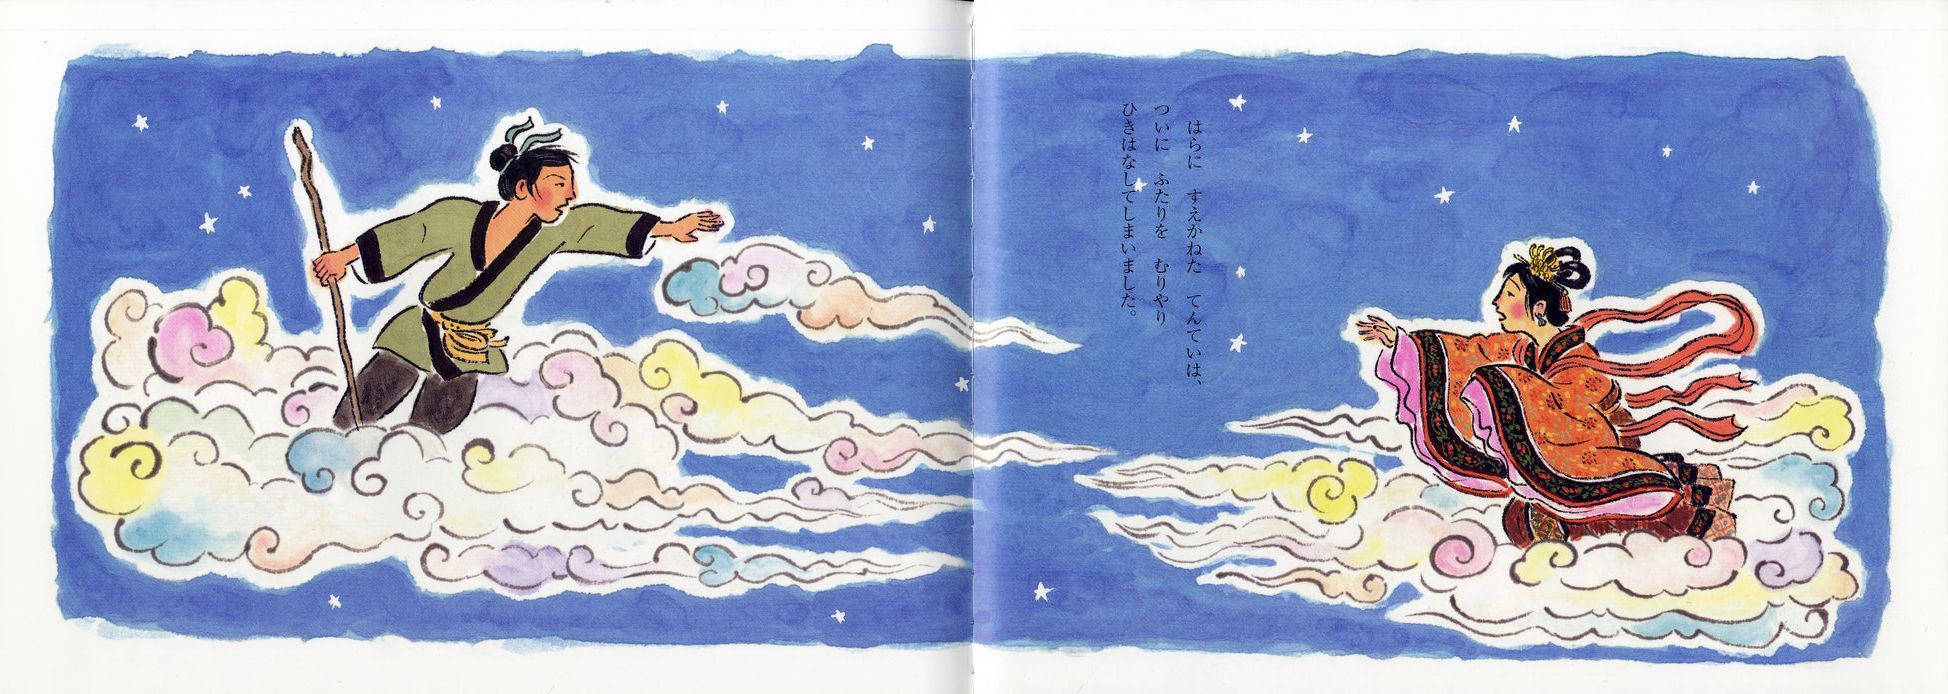 はらに　すえかねた　てんていは、
ついに　ふたりを　むりやり
ひきはなしてしまいました。